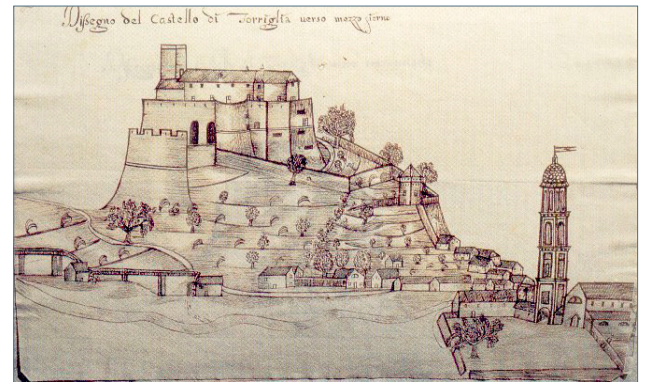 Dissegno del Castello di Torriglia verso mezzo giorno